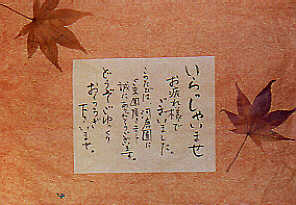 いらっしゃいませ
お疲れ様で
ございました。
このたびは
ご来園頂きまして
誠にありがとうございます。
どうぞごゆっくり
おくつろぎ
下さいませ。